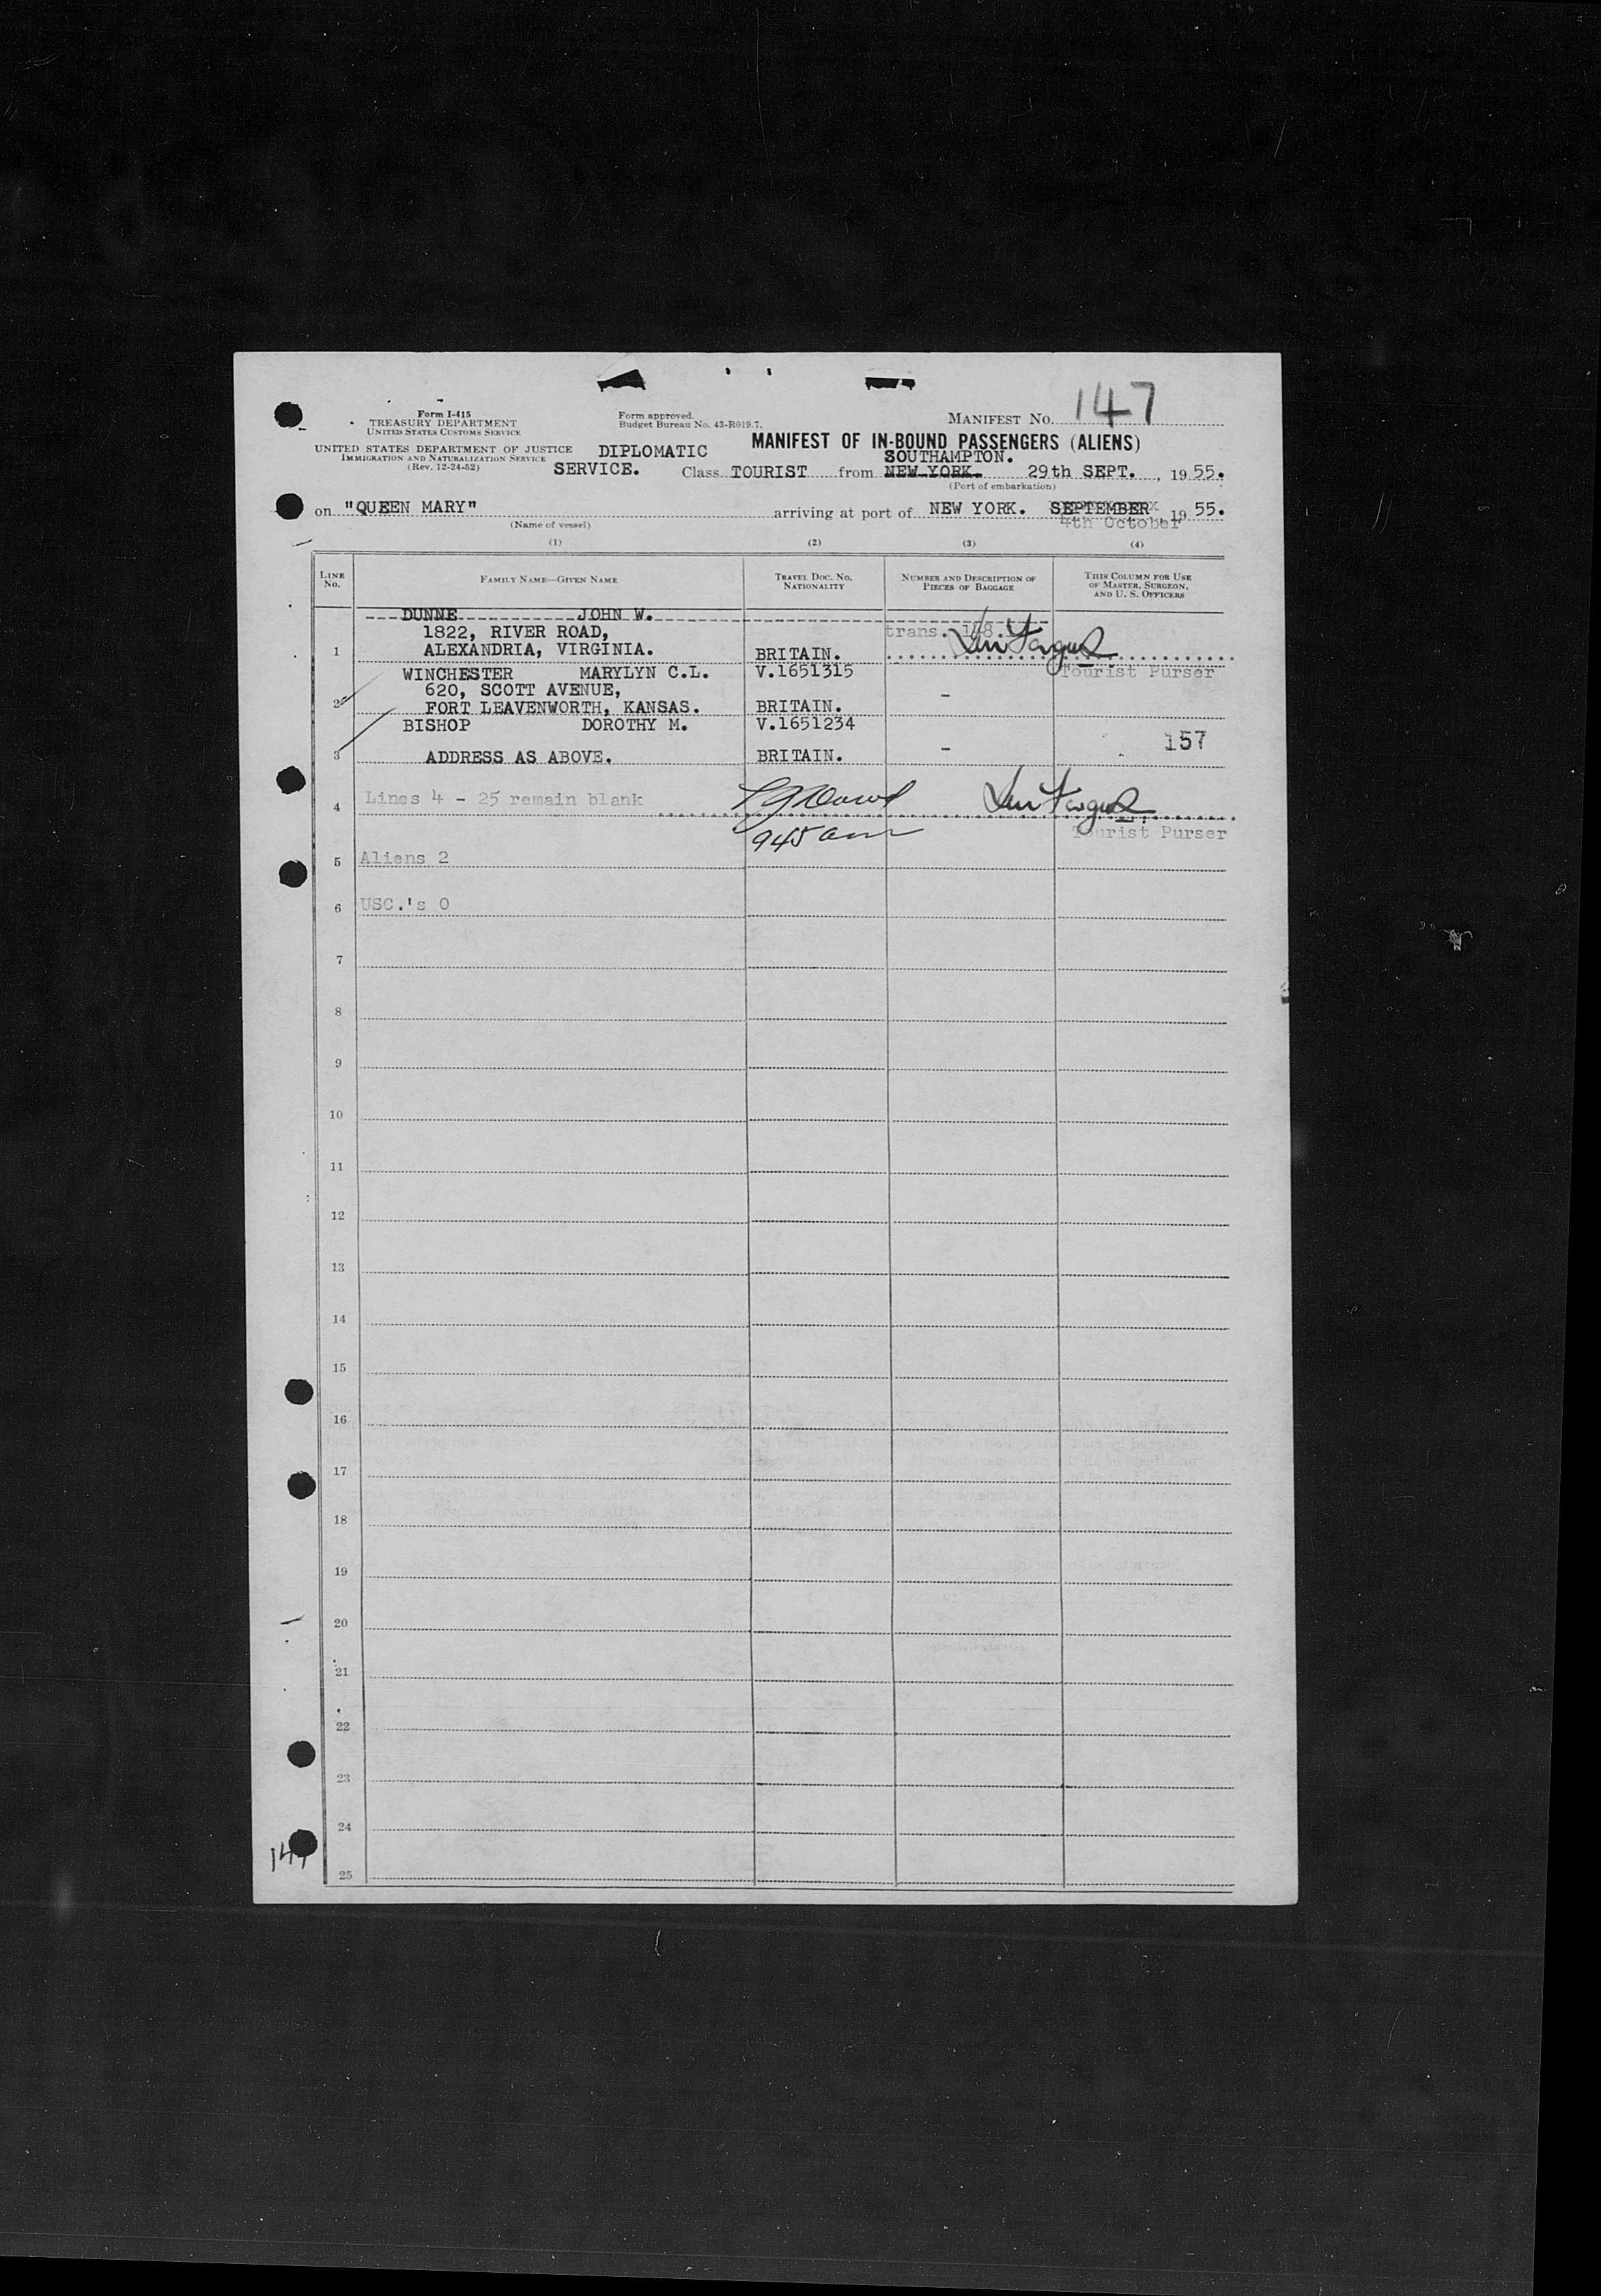 Form I-415
TREASURY DEPARTMENT
UNITED STATES CUSTOMS SERVICE
UNITED STATES DEPARTMENT OF JUSTICE
IMMIGRATION AND NATURALIZATION SERVICE
(Rev. 12-24-52)
Form approved.
Budget Bureau No. 43-R019.7.
MANIFEST NO. 147
MANIFEST OF IN-BOUND PASSENGERS (ALIENS)
DIPLOMATIC
SERVICE.
SOUTHAMPTON.
Class TOURIST from NEW YORK. 29th SEPT. , 19 55.
(Port of embarkation)
on "QUEEN MARY" arriving at port of NEW YORK. SEPTEMBER , 19 55.
4th October
(Name of vessel)
(1) (2) (3) (4)
LINE NO.
FAMILY NAME—GIVEN NAME
TRAVEL DOC. NO. NATIONALITY
NUMBER AND DESCRIPTION OF PIECES OF BAGGAGE
THIS COLUMN FOR USE OF MASTER, SURGEON, AND U. S. OFFICERS
DUNNE JOHN W.
1822, RIVER ROAD, trans. 148
1 ALEXANDRIA, VIRGINIA. BRITAIN.
WINCHESTER MARYLYN C.L. V.1651315 Tourist Purser
620, SCOTT AVENUE, -
2 FORT LEAVENWORTH, KANSAS. BRITAIN.
BISHOP DOROTHY M. V.1651234
157
3 ADDRESS AS ABOVE. BRITAIN. -
4 Lines 4 - 25 remain blank
945 am Tourist Purser
5 Aliens 2
6 USC.'s 0
7
8
9
10
11
12
13
14
15
16
17
18
19
20
21
22
23
24
147
25